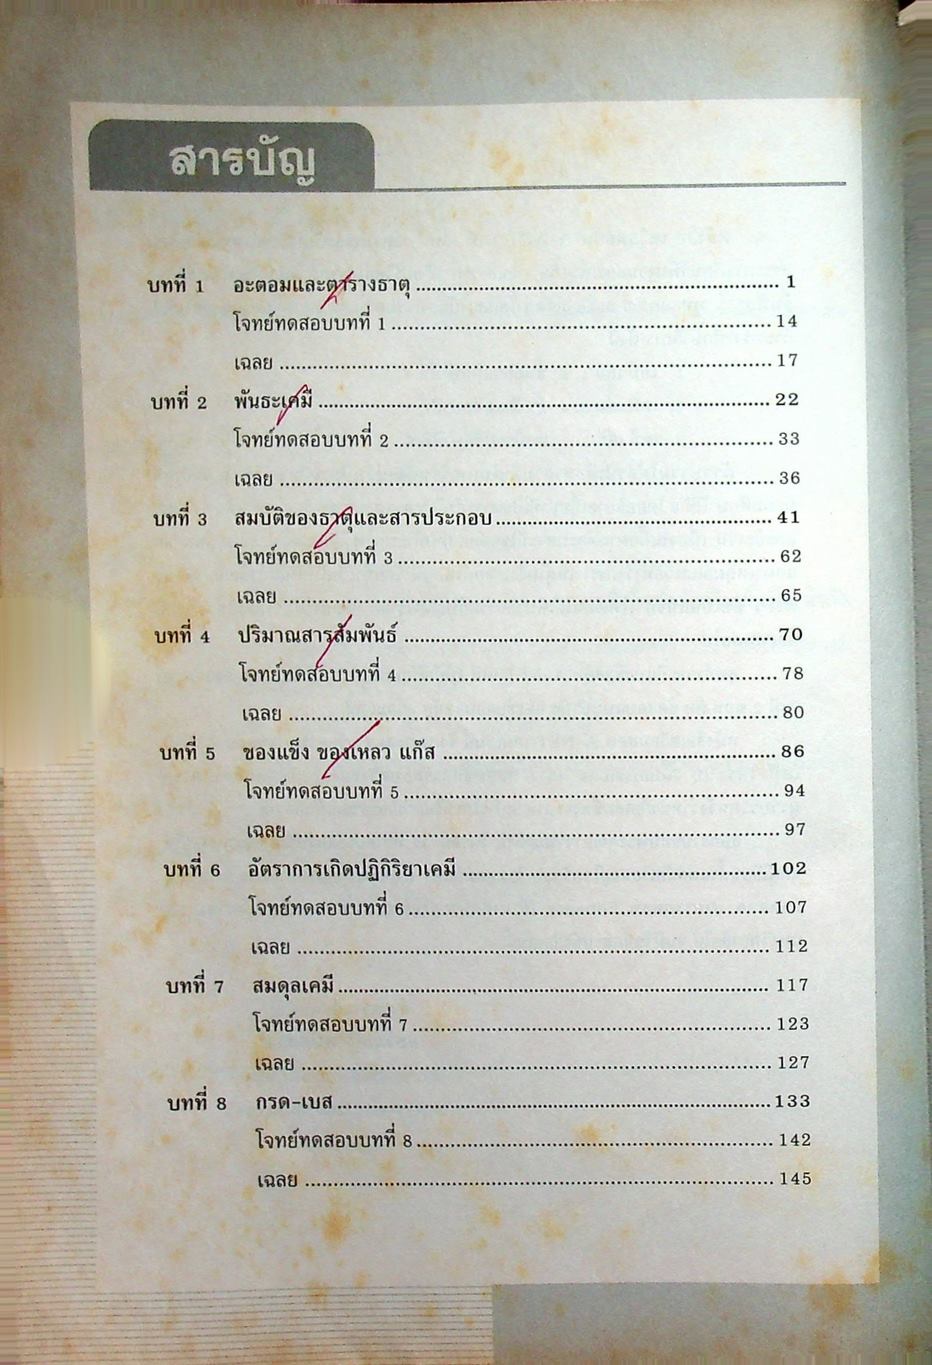 สารบัญ
บทที่ 1 อะตอมและตารางธาตุ ........................ 1
โจทย์ทดสอบบทที่ 1 ........................ 14
เฉลย ........................ 17
บทที่ 2 พันธะเคมี ........................ 22
โจทย์ทดสอบบทที่ 2 ........................ 33
เฉลย ........................ 36
บทที่ 3 สมบัติของธาตุและสารประกอบ ........................ 41
โจทย์ทดสอบบทที่ 3 ........................ 62
เฉลย ........................ 65
บทที่ 4 ปริมาณสารสัมพันธ์ ........................ 70
โจทย์ทดสอบบทที่ 4 ........................ 78
เฉลย ........................ 80
บทที่ 5 ของแข็ง ของเหลว แก๊ส ........................ 86
โจทย์ทดสอบบทที่ 5 ........................ 94
เฉลย ........................ 97
บทที่ 6 อัตราการเกิดปฏิกิริยาเคมี ........................ 102
โจทย์ทดสอบบทที่ 6 ........................ 107
เฉลย ........................ 112
บทที่ 7 สมดุลเคมี ........................ 117
โจทย์ทดสอบบทที่ 7 ........................ 123
เฉลย ........................ 127
บทที่ 8 กรด-เบส ........................ 133
โจทย์ทดสอบบทที่ 8 ........................ 142
เฉลย ........................ 145